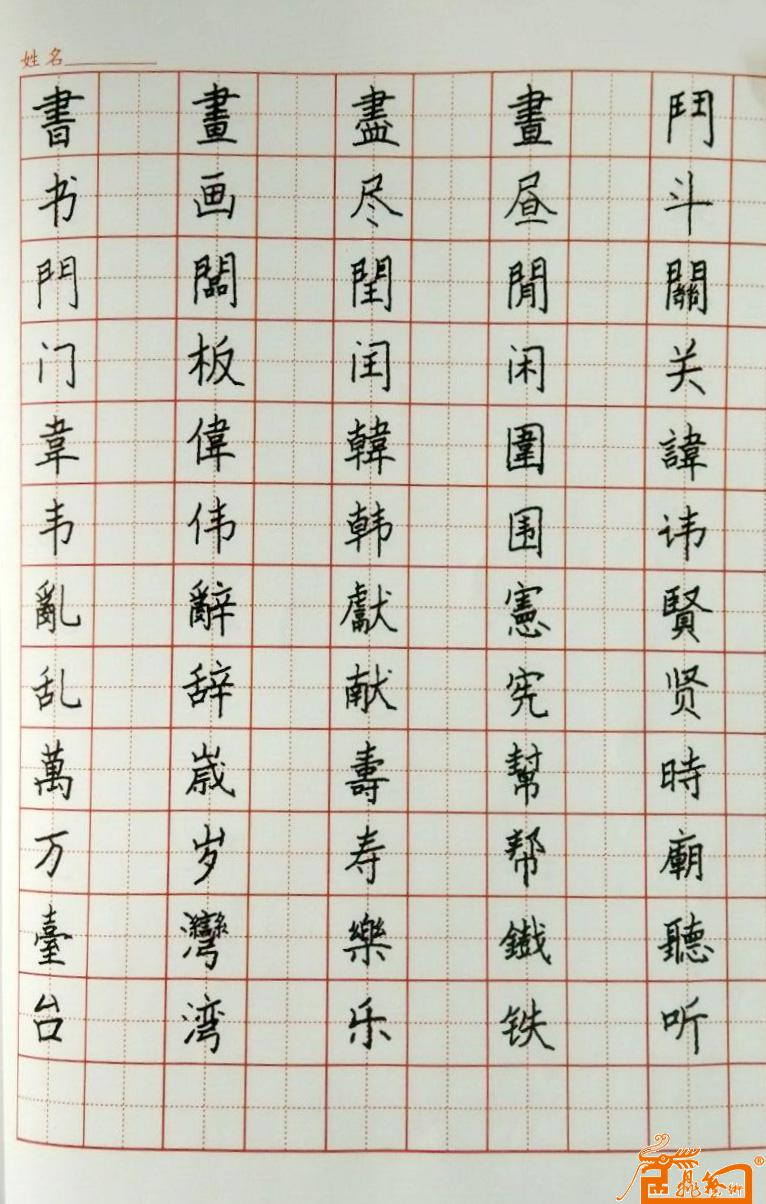 姓名
書 畫 盡 晝 鬥
书 画 尽 昼 斗
門 闆 閏 閒 關
门 板 闰 闲 关
韋 偉 韓 圍 諱
韦 伟 韩 围 讳
亂 辭 獻 憲 賢
乱 辞 献 宪 贤
萬 歲 壽 幫 時
万 岁 寿 帮 廟
臺 灣 樂 鐵 聽
台 湾 乐 铁 听